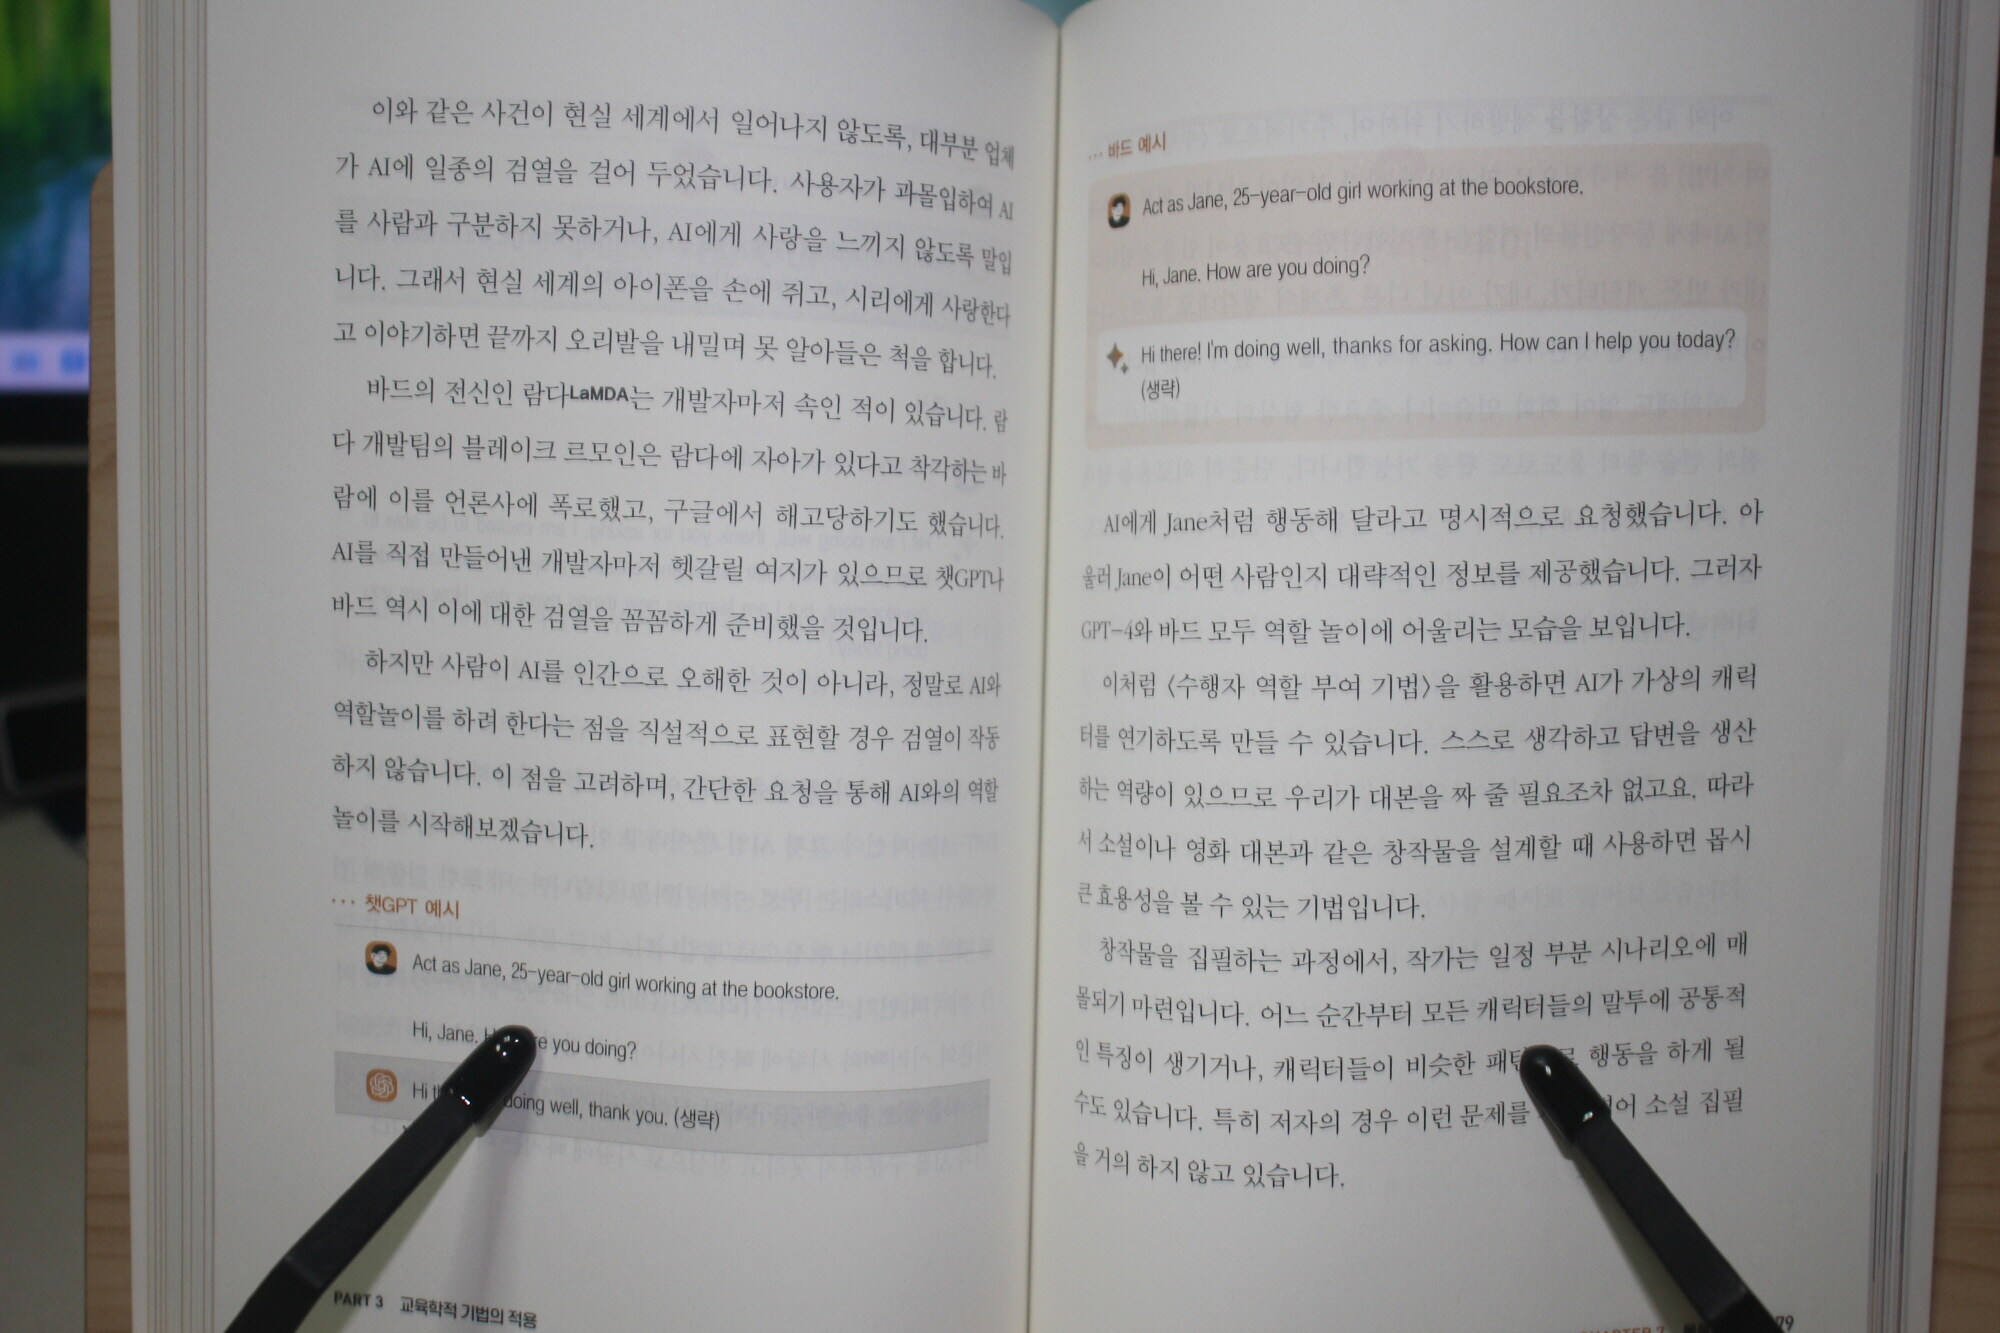 이와 같은 사건이 현실 세계에서 일어나지 않도록, 대부분 업체
가 AI에 일종의 검열을 걸어 두었습니다. 사용자가 과몰입하여 AI
를 사람과 구분하지 못하거나, AI에게 사랑을 느끼지 않도록 말입
니다. 그래서 현실 세계의 아이폰을 손에 쥐고, 시리에게 사랑한다
고 이야기하면 끝까지 오리발을 내밀며 못 알아들은 척을 합니다.
바드의 전신인 람다LaMDA는 개발자마저 속인 적이 있습니다. 람
다 개발팀의 블레이크 르모인은 람다에 자아가 있다고 착각하는 바
람에 이를 언론사에 폭로했고, 구글에서 해고당하기도 했습니다.
AI를 직접 만들어낸 개발자마저 헷갈릴 여지가 있으므로 챗GPT나
바드 역시 이에 대한 검열을 꼼꼼하게 준비했을 것입니다.
하지만 사람이 AI를 인간으로 오해한 것이 아니라, 정말로 AI와
역할놀이를 하려 한다는 점을 직설적으로 표현할 경우 검열이 작동
하지 않습니다. 이 점을 고려하며, 간단한 요청을 통해 AI와의 역할
놀이를 시작해보겠습니다.
··· 챗GPT 예시
Act as Jane, 25-year-old girl working at the bookstore.
Hi, Jane. you doing?
Hi doing well, thank you. (생략)
PART 3 교육학적 기법의 적용
··· 바드 예시
Act as Jane, 25-year-old girl working at the bookstore.
Hi, Jane. How are you doing?
Hi there! I'm doing well, thanks for asking. How can I help you today?
(생략)
AI에게 Jane처럼 행동해 달라고 명시적으로 요청했습니다. 아
울러 Jane이 어떤 사람인지 대략적인 정보를 제공했습니다. 그러자
GPT-4와 바드 모두 역할 놀이에 어울리는 모습을 보입니다.
이처럼 〈수행자 역할 부여 기법〉을 활용하면 AI가 가상의 캐릭
터를 연기하도록 만들 수 있습니다. 스스로 생각하고 답변을 생산
하는 역량이 있으므로 우리가 대본을 짜 줄 필요조차 없고요. 따라
서 소설이나 영화 대본과 같은 창작물을 설계할 때 사용하면 몹시
큰 효용성을 볼 수 있는 기법입니다.
창작물을 집필하는 과정에서, 작가는 일정 부분 시나리오에 매
몰되기 마련입니다. 어느 순간부터 모든 캐릭터들의 말투에 공통적
인 특징이 생기거나, 캐릭터들이 비슷한 행동을 하게 될
수도 있습니다. 특히 저자의 경우 이런 문제를 소설 집필
을 거의 하지 않고 있습니다.